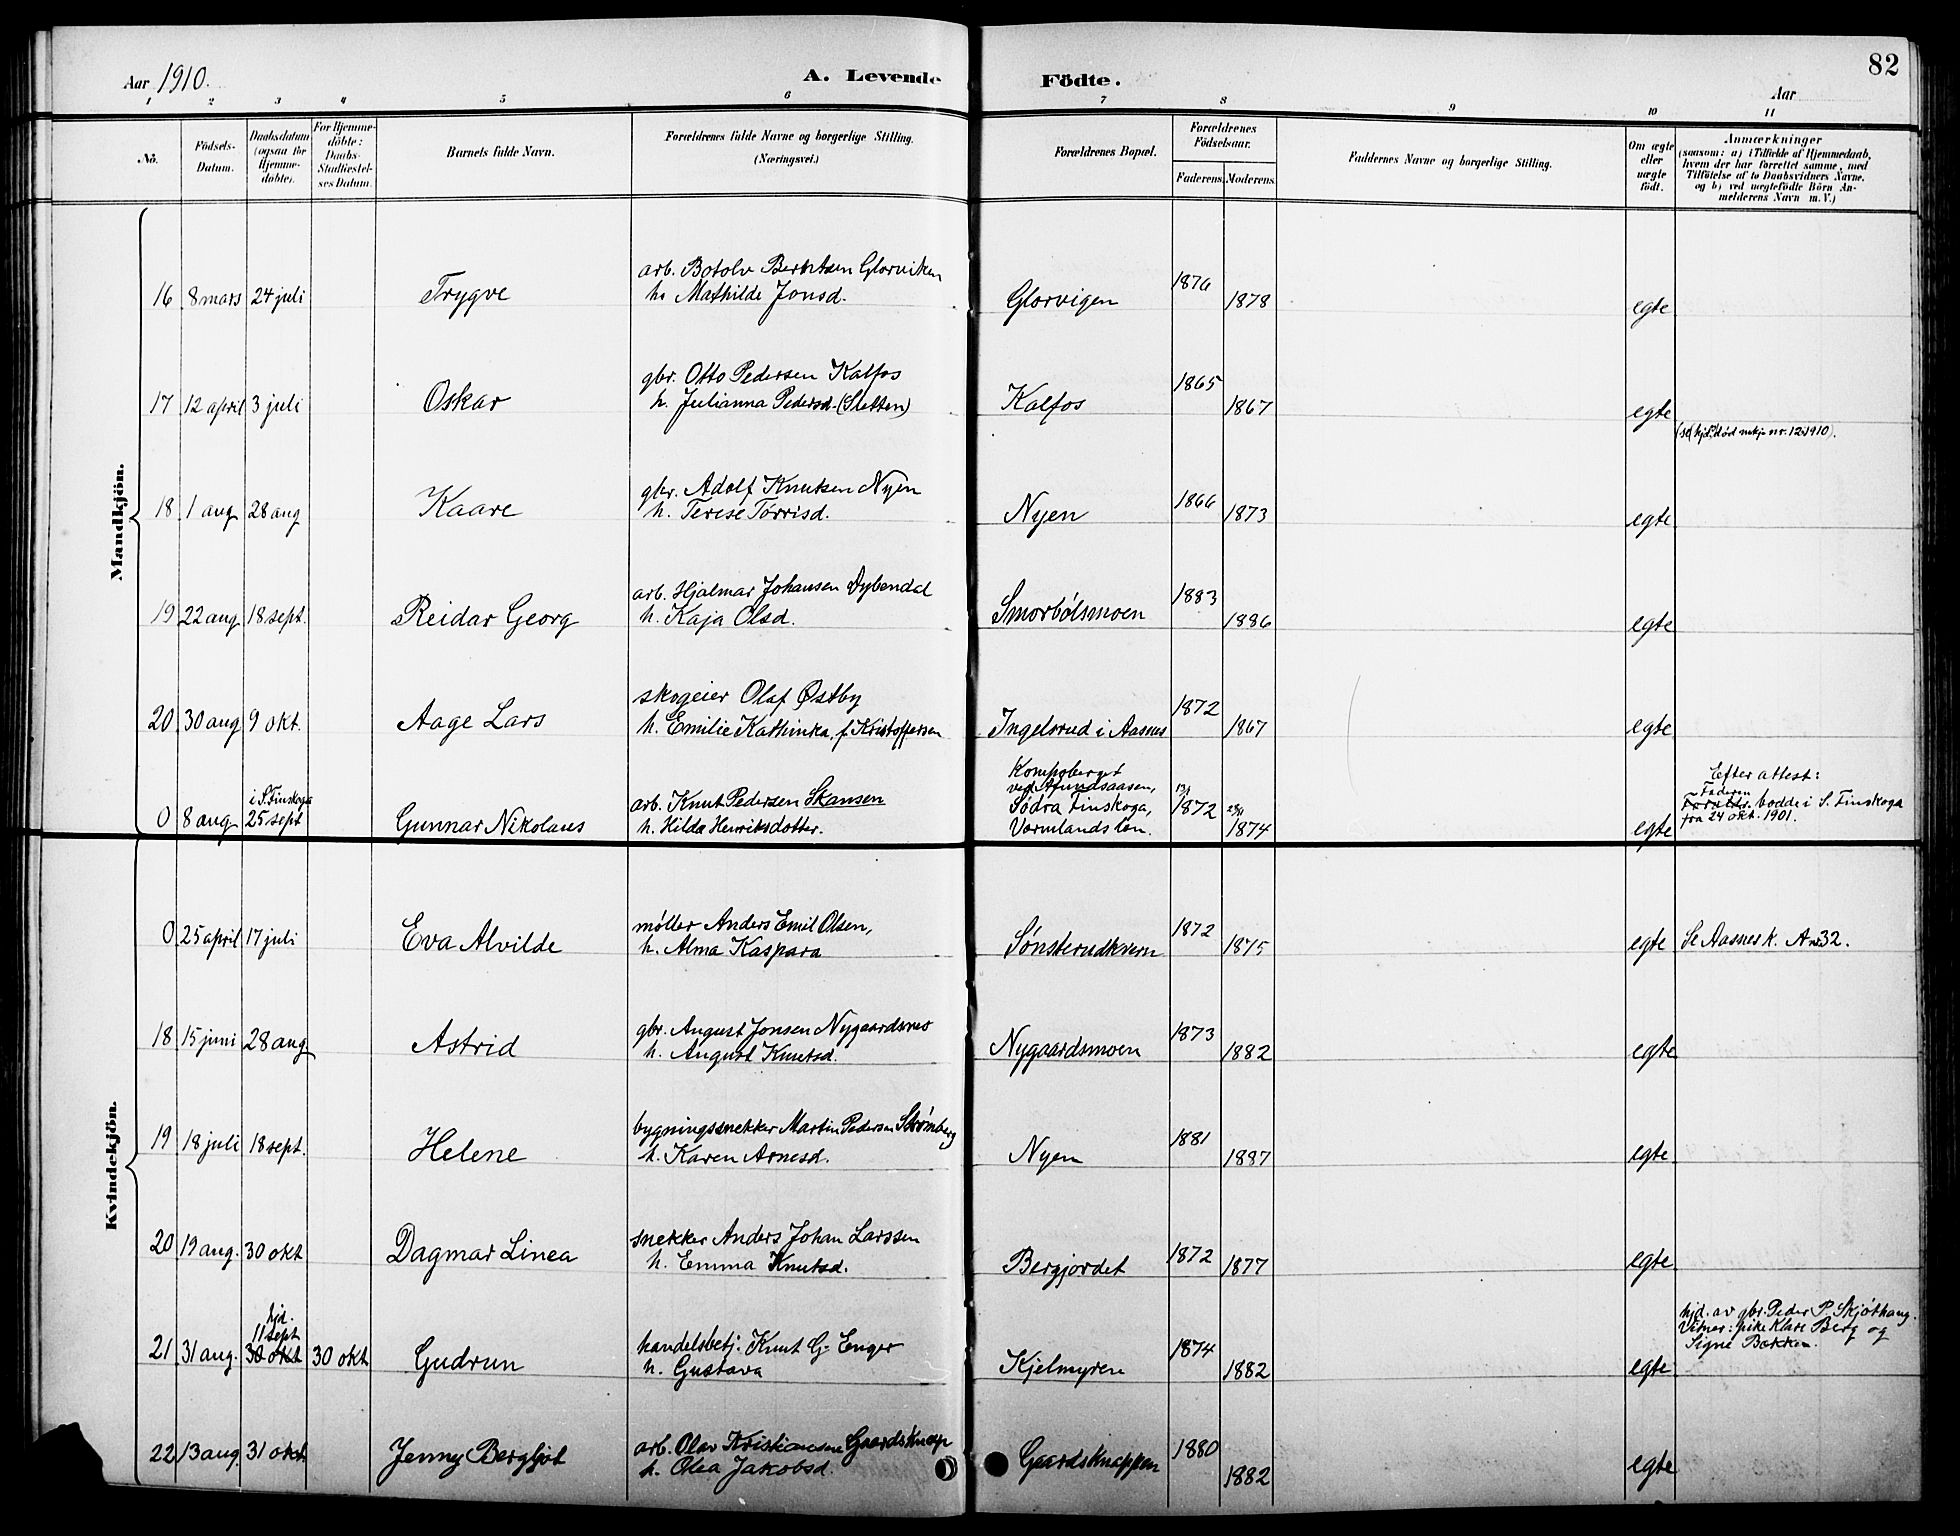 Aar 1910.
A. Levende Födte.
82
Aar
1 2 3 4 5 6 7 8 9 10 11
No.
Födsels-Datum.
Daabsdatum (ogsaa for Hjemme-døbte).
For Hjemme-döbte: Daabs-Stadfæstel-ses Datum.
Barnets fulde Navn.
Forældrenes fulde Navne og borgerlige Stilling. (Næringsvei.)
Forældrenes Bopæl.
Forældrenes Födselsaar.
Faderens. Moderens.
Faddernes Navne og borgerlige Stilling.
Om ægte eller uægte födt.
Anmærkninger
(saasom: a) i Tilfælde af Hjemmedaab,
hvem der har forrettet samme, med
Tilföielse af to Daabsvidners Navne,
og b) ved uægtefödte Börn An-
melderens Navn m. V.)
Mandkjön.
arb. Botolv Berntsen Glorviken
16 8 mars 24 juli Trygve h. Mathilde Jonsd. Glorvigen 1876 1878 egte
gbr. Otto Pedersen Kalfos
17 12 april 3 juli Oskar h. Julianna Pedersd. (Sletten) Kalfos 1865 1867 egte
nr. 12 1910).
gbr. Adolf Knutsen Nyen
18 1 aug 28 aug Kaare h. Terese Tørrisd. Nyen 1866 1873 egte
arb. Hjalmar Johansen Dybendal
19 22 aug 18 sept. Reidar Georg h. Kaja Olsd. Smorbølsmoen 1883 1886 egte
skogeier Olaf Østby
20 30 aug 9 okt. Aage Lars h. Emilie Kathinka, f. Kristoffersen Ingelsrud i Aasnes 1872 1867 egte
i S. Finskoga
arb. Knut Pedersen Skansen
0 8 aug 25 sept Gunnar Nikolaus h. Hilda Henriksdotter.
Kompoberget
ved Afundsaasen,
Södra Finskoga,
Värmlands län.
1872 1874 egte
Efter attest:
Faderen
Forældr. bodde i S. Finskoga
fra 24 okt. 1901.
Kvindekjön.
møller Anders Emil Olsen,
0 25 april 17 juli Eva Alvilde h. Alma Kaspara Sønsterudkvern 1872 1875 egte Se Aasnes k. A nr 32.
gbr. August Jonsen Nygaardsmo
18 15 juni 28 aug Astrid h. August Knutsd. Nygaardsmoen 1873 1882 egte
bygningssnekker Martin Pedersen Strømberg
19 18 juli 18 sept. Helene h. Karen Arnesd. Nyen 1881 1887 egte
snekker Anders Johan Larssen
20 19 aug. 30 okt Dagmar Linea h. Emma Knutsd. Bergjordet 1872 1877 egte
hjd.
11 sept
handelsbetj. Knut G. Enger
21 31 aug. 30 okt 30 okt Gudrun h. Gustava Kjelmyren 1874 1882 egte
hjd. av gbr. Peder P. Skjøthaug.
Vitner: pike Klare Berg og
Signe Bækken.
arb. Olav Kristiansen Gaardsknap
22 13 aug 31 okt Jenny Bergljot h. Olea Jakobsd. Gaardsknappen 1880 1882 egte